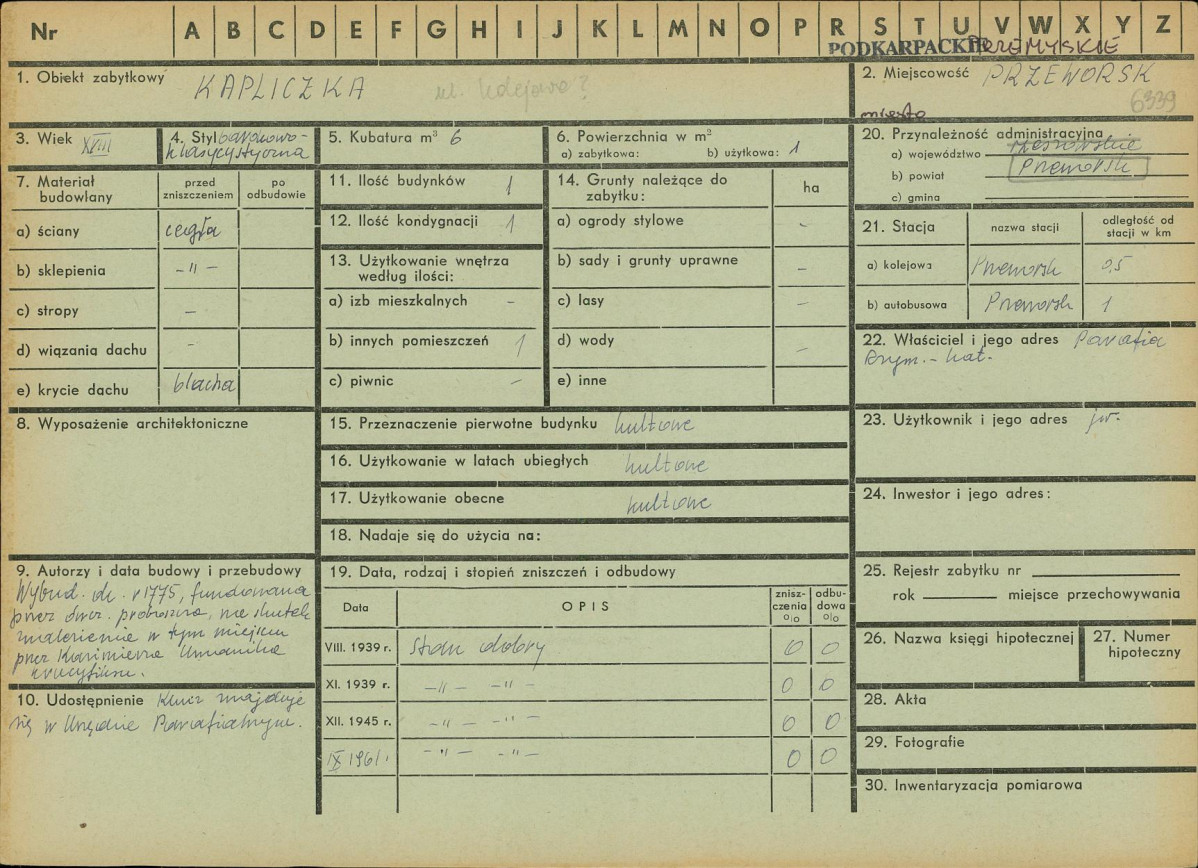 Nr A B C D E F G H I J K L M N O P R S T U V W X Y Z
PODKARPACKIE PRZEMYSKIE
1. Obiekt zabytkowy KAPLICZKA ul. Kolejowa?
2. Miejscowość PRZEWORSK
miasto 6339
3. Wiek XVIII
4. Styl barokowo-
klasycystyczna
5. Kubatura m³ 6
6. Powierzchnia w m²
a) zabytkowa: b) użytkowa: 1
20. Przynależność administracyjna
a) województwo rzeszowskie
b) powiat Przeworsk
c) gmina
7. Materiał budowlany
przed zniszczeniem
po odbudowie
a) ściany cegła
b) sklepienia -"-
c) stropy -
d) wiązania dachu -
e) krycie dachu blacha
11. Ilość budynków 1
12. Ilość kondygnacji 1
13. Użytkowanie wnętrza
według ilości:
a) izb mieszkalnych -
b) innych pomieszczeń 1
c) piwnic -
14. Grunty należące do
zabytku: ha
a) ogrody stylowe -
b) sady i grunty uprawne -
c) lasy -
d) wody -
e) inne
21. Stacja nazwa stacji odległość od
stacji w km
a) kolejowa Przeworsk 0,5
b) autobusowa Przeworsk 1
22. Właściciel i jego adres Parafia
Rzym.-kat.
8. Wyposażenie architektoniczne
15. Przeznaczenie pierwotne budynku kultowe
16. Użytkowanie w latach ubiegłych kultowe
17. Użytkowanie obecne kultowe
18. Nadaje się do użycia na:
23. Użytkownik i jego adres jw.
24. Inwestor i jego adres:
9. Autorzy i data budowy i przebudowy
Wybud. ok. r 1775, fundowana
przez ówcz. proboszcza, na skutek
znalezienia w tym miejscu
przez Kazimierza
krucyfiksu.
10. Udostępnienie Klucz znajduje
się w Urzędzie Parafialnym.
19. Data, rodzaj i stopień zniszczeń i odbudowy
Data OPIS znisz-
czenia
o|o odbu-
dowa
o|o
VIII. 1939 r. Stan dobry 0 0
XI. 1939 r. -"- -"- 0 0
XII. 1945 r. -"- -"- 0 0
IX 1961. -"- -"- 0 0
25. Rejestr zabytku nr
rok miejsce przechowywania
26. Nazwa księgi hipotecznej
27. Numer
hipoteczny
28. Akta
29. Fotografie
30. Inwentaryzacja pomiarowa